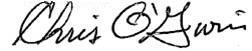 Chris O'Gwin